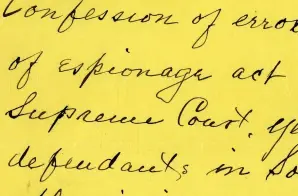 Confession of erro
of espionage act
Supreme Court.
defendants in So